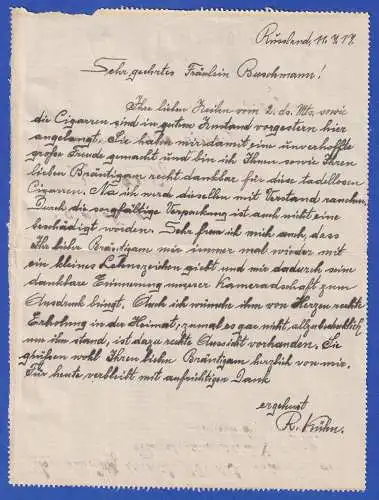 Russland, 11.8.17.
Sehr geehrtes Fräulein Buschmann!
Ihre lieben Zeilen vom 2. ds. Mts. sowie
die Cigarren sind in gutem Zustand vorgestern hier
angelangt, Sie haben mir damit eine unverhoffte
große Freude gemacht und bin ich Ihnen sowie Ihrem
lieben Bräutigam recht dankbar für diese tadellosen
Cigarren. Na ich werde dieselben mit Verstand rauchen.
Durch die sorgfältige Verpackung ist auch nicht eine
beschädigt worden. Sehr freu ich mich auch, dass
Ihr lieber Bräutigam mir immer mal wieder mit
ein kleines Lebenszeichen giebt und mir dadurch seine
dankbare Erinnerung unserer Kameradschaft zum
Ausdruck bringt. Auch ich wünsche ihm von Herzen rechte
Erholung in der Heimat, zumal es gar nicht
um ihn stand, ist dazu rechte Aussicht vorhanden. Sie
grüssen wohl Ihren lieben Bräutigam herzlich von mir.
Für heute verbleibt mit aufrichtigem Dank
ergebenst
R. Kühn.